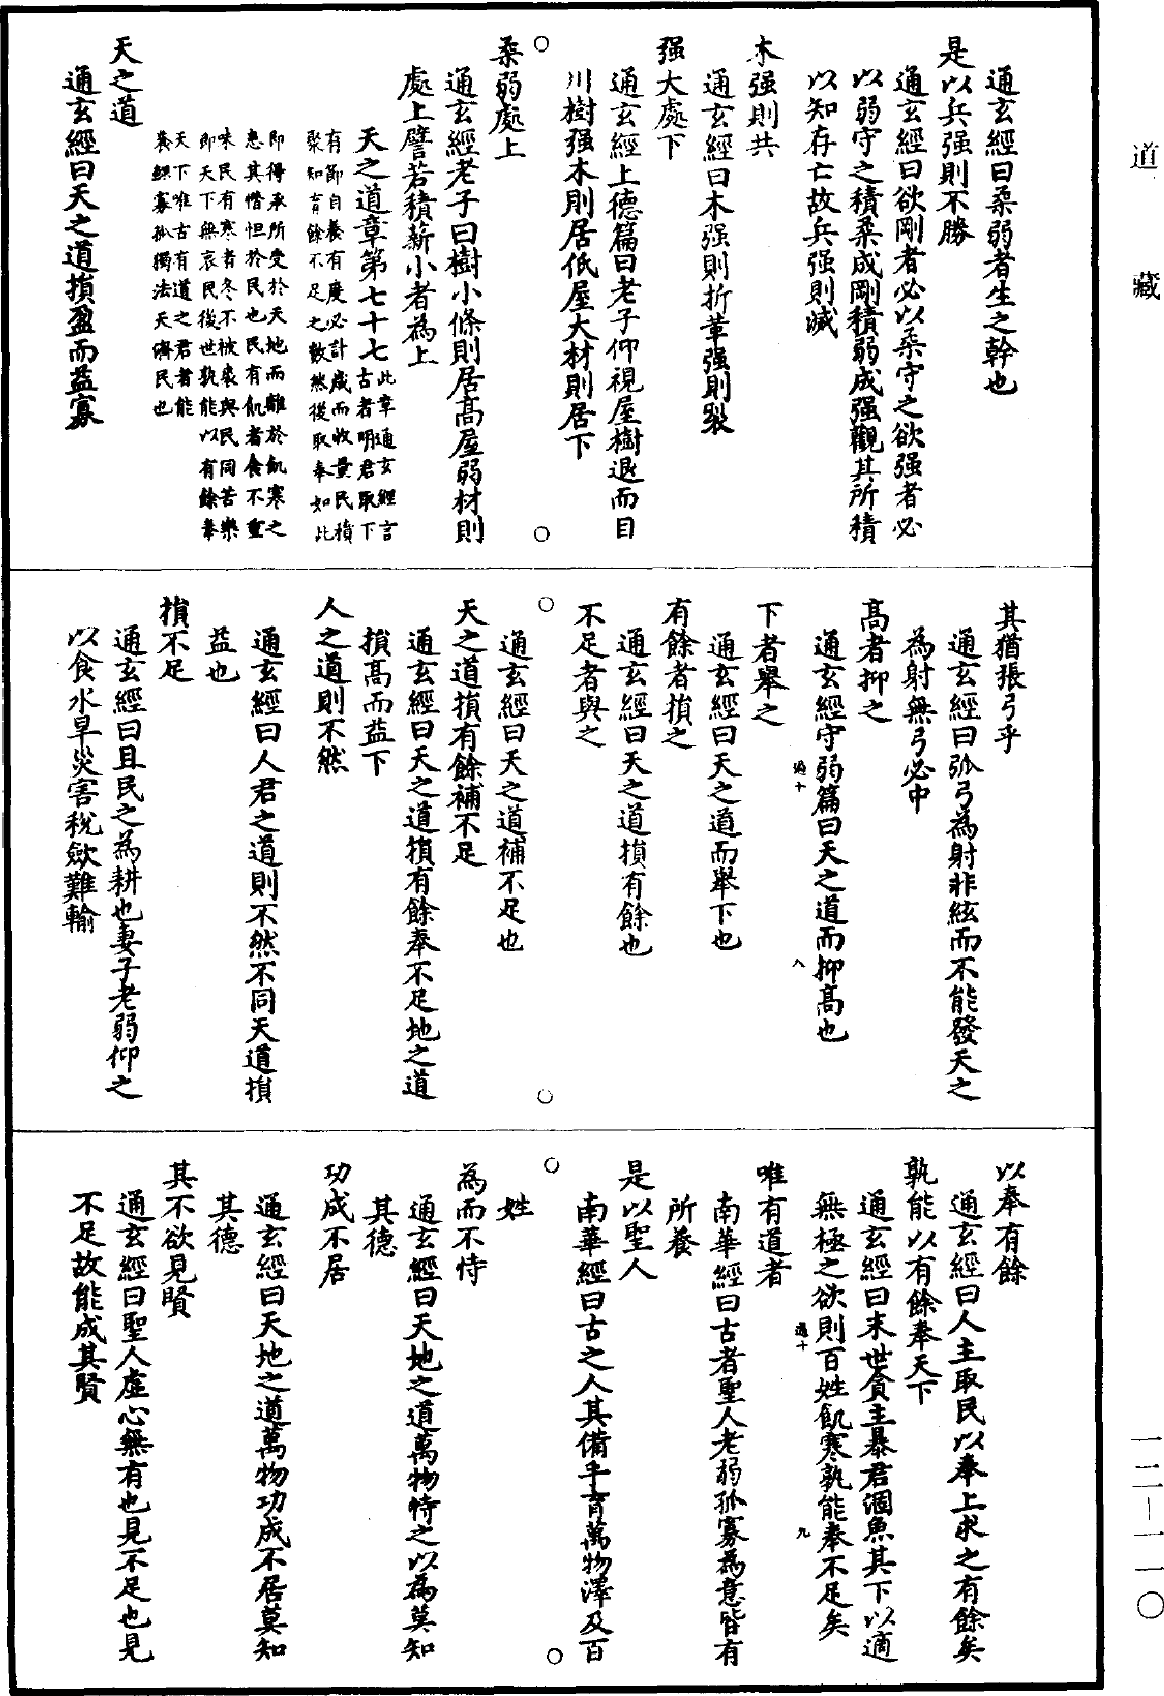 道藏
通玄經曰柔弱者生之幹也
是以兵强則不勝
通玄經曰欲剛者必以柔守之欲强者必
以弱守之積柔成剛積弱成强觀其所積
以知存亡故兵强則滅
木强則共
通玄經曰木强則折革强則裂
强大處下
通玄經上德篇曰老子仰視屋樹退而目
川樹强木則居低屋大材則居下
柔弱處上
通玄經老子曰樹小條則居高屋弱材則
處上譬若積薪小者為上
天之道章第七十七此章通玄經言
古者明君取下
有節自養有度必計歲而收量民積
聚知有餘不足之數然後取奉如此
即得承所受於天地而離於飢寒之
患其憯怛於民也民有飢者食不重
味民有寒者冬不被裘與民同苦樂
即天下無哀民後世孰能以有餘奉
天下唯古有道之君者能
養鰥寡孤獨法天濟民也
天之道
通玄經曰天之道損盈而益寡
其猶張弓乎
通玄經曰弧弓為射非絃而不能發天之
為射無弓必中
高者抑之
通玄經守弱篇曰天之道而抑高也
過十
八
下者舉之
通玄經曰天之道而舉下也
有餘者損之
通玄經曰天之道損有餘也
不足者與之
通玄經曰天之道補不足也
天之道損有餘補不足
通玄經曰天之道損有餘奉不足地之道
損高而益下
人之道則不然
通玄經曰人君之道則不然不同天道損
益也
損不足
通玄經曰且民之為耕也妻子老弱仰之
以食水旱災害稅歛難輸
以奉有餘
通玄經曰人主取民以奉上求之有餘矣
孰能以有餘奉天下
通玄經曰末世貪主暴君涸魚其下以適
無極之欲則百姓飢寒孰能奉不足矣
過十
九
唯有道者
南華經曰古者聖人老弱孤寡為意皆有
所養
是以聖人
南華經曰古之人其備乎育萬物澤及百
姓
為而不恃
通玄經曰天地之道萬物恃之以為莫知
其德
功成不居
通玄經曰天地之道萬物功成不居莫知
其德
其不欲見賢
通玄經曰聖人虛心無有也見不足也見
不足故能成其賢
一二—一一〇